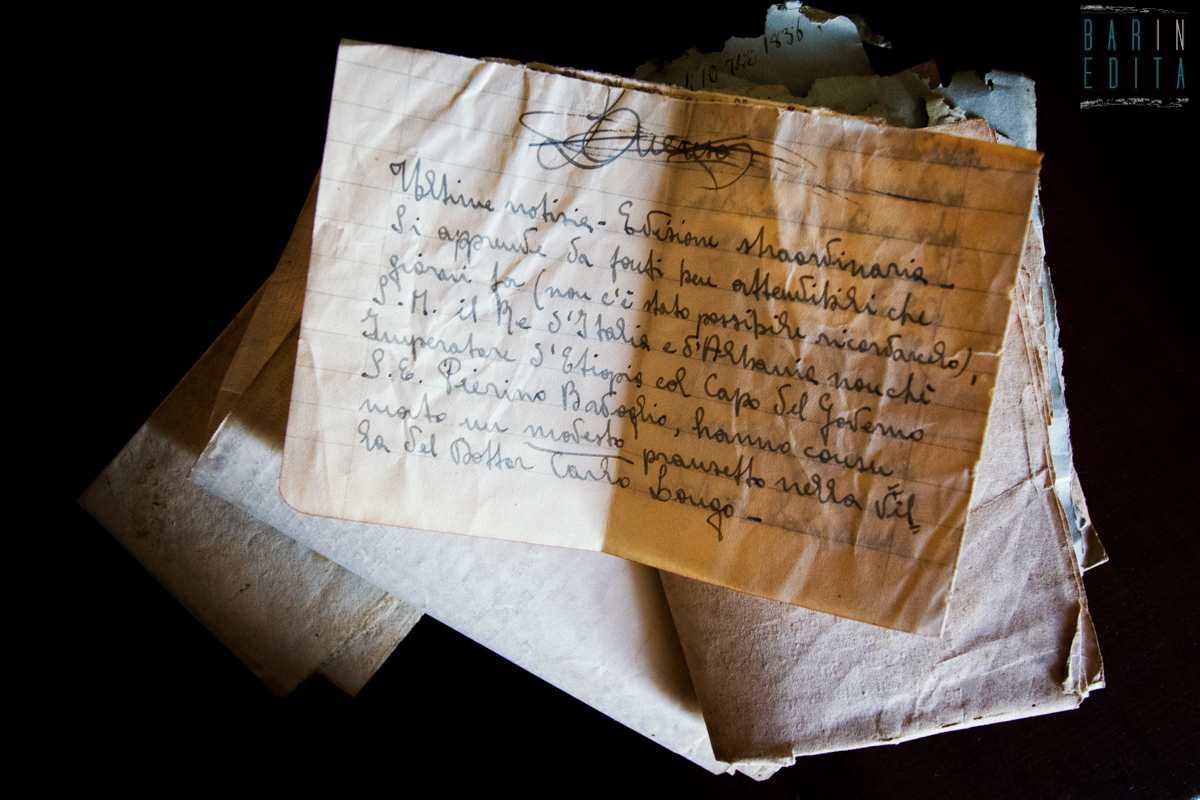 BARIN
EDITA
10 7bre 1836
Ultime notizie - Edizione straordinaria -
Si apprende da fonti ben attendibili che
giorni fa (non c'è stato possibile ricordarcelo),
S. M. il Re d'Italia e d'Albania nonché
Imperatore d'Etiopia col Capo del Governo
S. E. Pierino Badoglio, hanno consu
mato un modesto pranzetto nella vil
la del Dottor Carlo Longo -